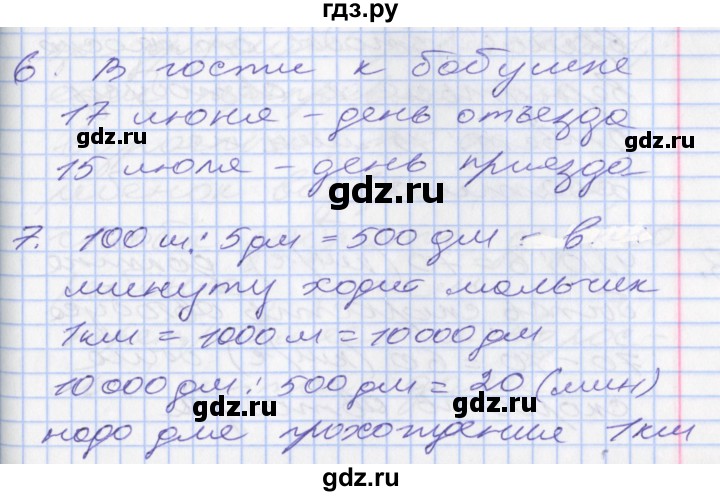 гдз.ру
6. В гости к бабушке
17 июня – день отъезда
15 июля – день приезда
gdz.ru
gdz.ru
gdz.ru
7. 100 ш : 5 дм = 500 дм – в
минуту ходит мальчик
1 км = 1000 м = 10 000 дм
10 000 дм : 500 дм = 20 (мин)
gdz.ru
gdz.ru
надо для прохождения 1 км
gdz.ru
gdz.ru